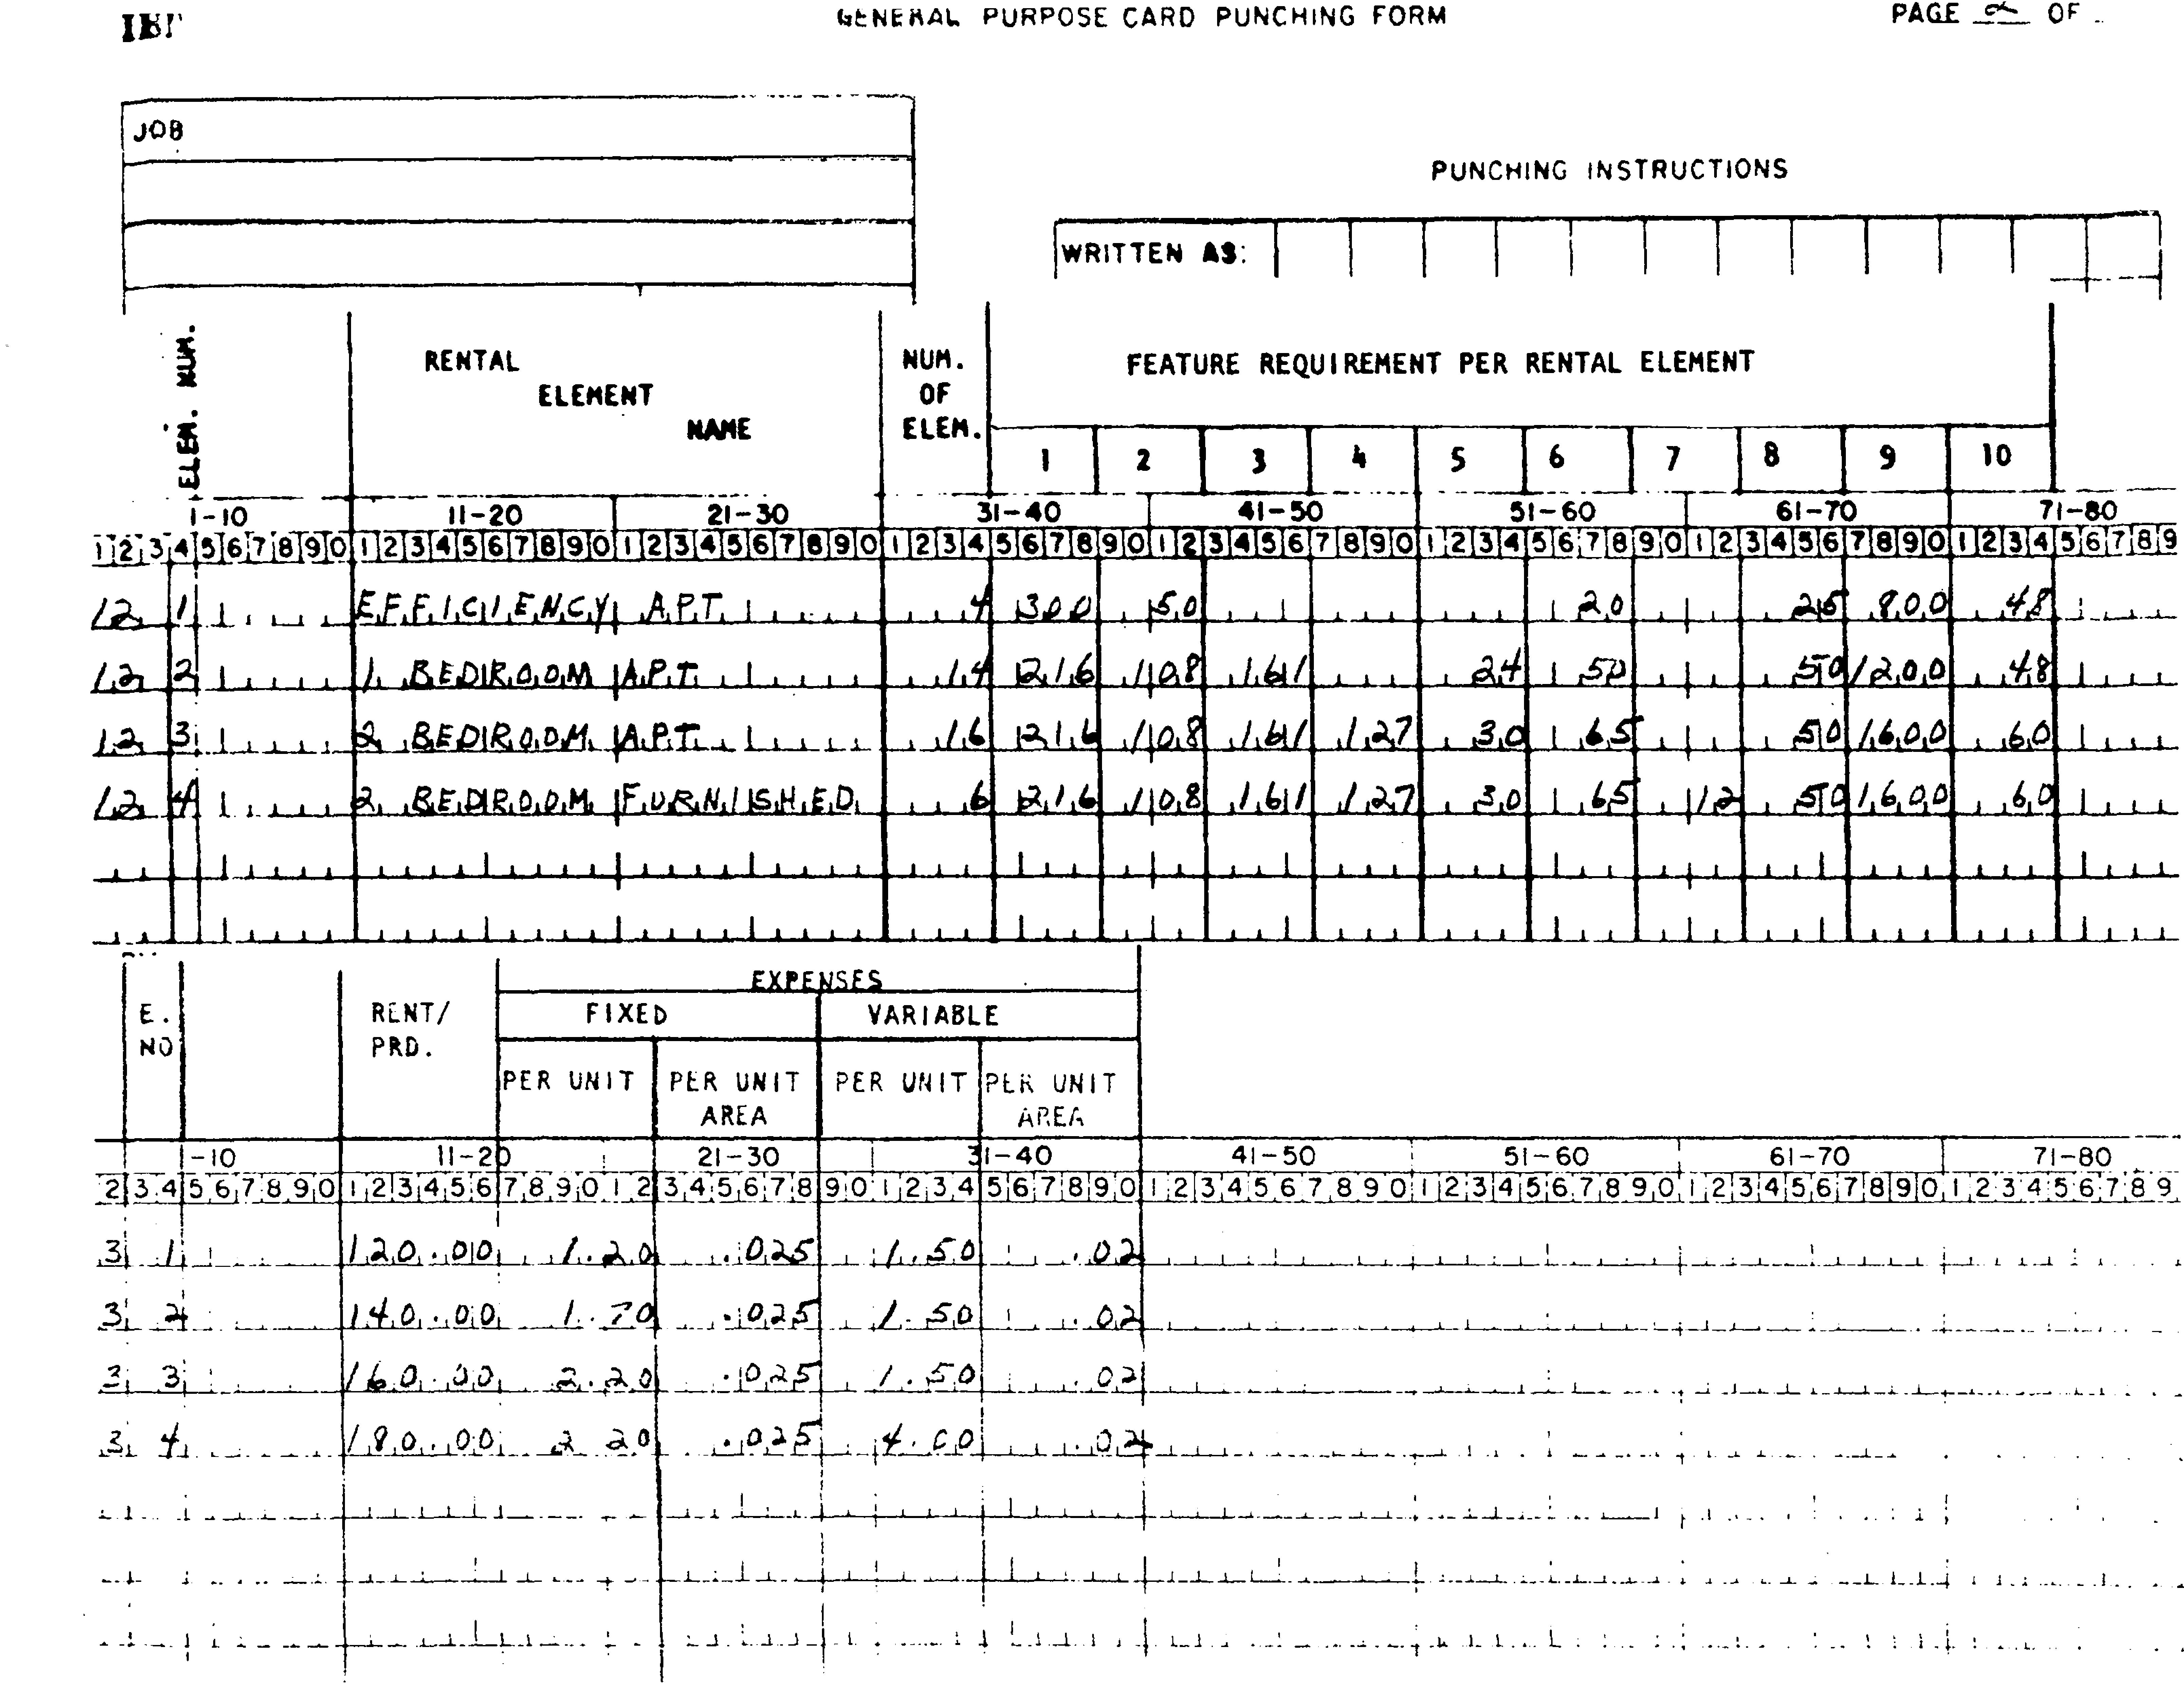 GENERAL PURPOSE CARD PUNCHING FORM PAGE 2 OF
JOB
PUNCHING INSTRUCTIONS
WRITTEN AS:
ELEM. NUM.
RENTAL ELEMENT NAME
NUM. OF ELEM.
FEATURE REQUIREMENT PER RENTAL ELEMENT
1 2 3 4 5 6 7 8 9 10
1-10 11-20 21-30 31-40 41-50 51-60 61-70 71-80
1234567890 1234567890 1234567890 1234567890 1234567890 1234567890 1234567890 123456789
12 1 EFFICIENCY APT 4 300 50 20 25 800 48
12 2 1 BEDROOM APT. 14 216 108 161 24 50 50 1200 48
12 3 2 BEDROOM APT. 16 216 108 161 127 30 65 50 1600 60
12 4 2 BEDROOM FURNISHED 6 216 108 161 127 30 65 12 50 1600 60
E. NO
RENT/ PRD.
EXPENSES
FIXED VARIABLE
PER UNIT PER UNIT AREA PER UNIT PER UNIT AREA
-10 11-20 21-30 31-40 41-50 51-60 61-70 71-80
234567890 1234567890 1234567890 1234567890 1234567890 1234567890 1234567890 123456789
3 1 120.00 1.20 .025 1.50 .02
3 2 140.00 1.70 .025 1.50 .02
3 3 160.00 2.20 .025 1.50 .02
3 4 180.00 2 20 .025 4.00 .02